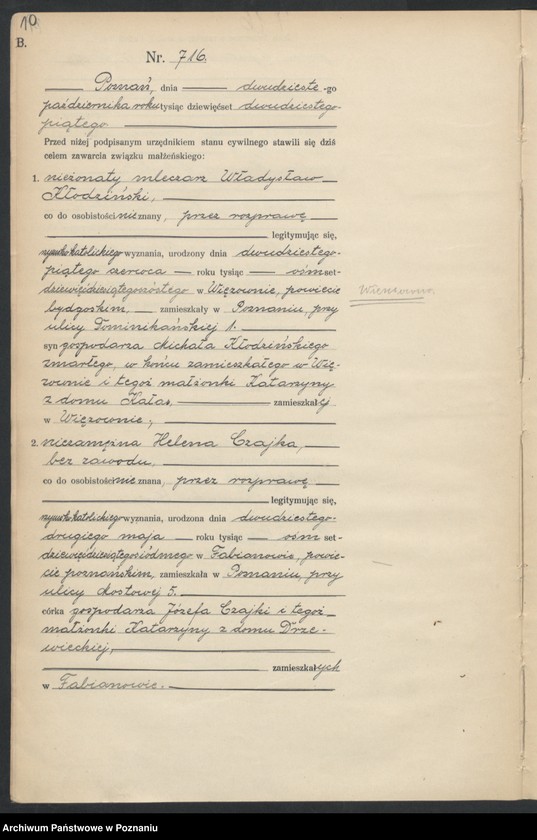 10
B.
Nr. 716.
Poznań, dnia dwudzieste-go
października roku tysiąc dziewięćset dwudziestego
piątego
Przed niżej podpisanym urzędnikiem stanu cywilnego stawili się dziś
celem zawarcia związku małżeńskiego:
1. nieżonaty mleczarz Władysław
Kłodziński,
co do osobistości nieznany, przez rozprawę
legitymując się,
rzymskokatolickiego wyznania, urodzony dnia dwudziestego-
piątego czerwca roku tysiąc ośmset-
dziewięćdziesiątegoszóstego w Więzownie, powiecie
bydgoskim, zamieszkały w Poznaniu, przy
ulicy Dominikańskiej 1.
syn gospodarza Michała Kłodzińskiego
zmarłego, w końcu zamieszkałego w Wię-
zownie i tegoż małżonki Katarzyny
z domu Kałas, zamieszkałej
w Więzownie,
2. niezamężna Helena Czajka,
bez zawodu,
co do osobistości nieznana, przez rozprawę
legitymując się,
rzymskokatolickiego wyznania, urodzona dnia dwudziestego-
drugiego maja roku tysiąc ośm set-
dziewięćdziesiątegosiódmego w Fabianowie, powie-
cie poznańskim, zamieszkała w Poznaniu, przy
ulicy Mostowej 5.
córka gospodarza Józefa Czajki i tegoż
małżonki Katarzyny z domu Drze-
wieckiej,
zamieszkałych
w Fabianowie.
Archiwum Państwowe w Poznaniu